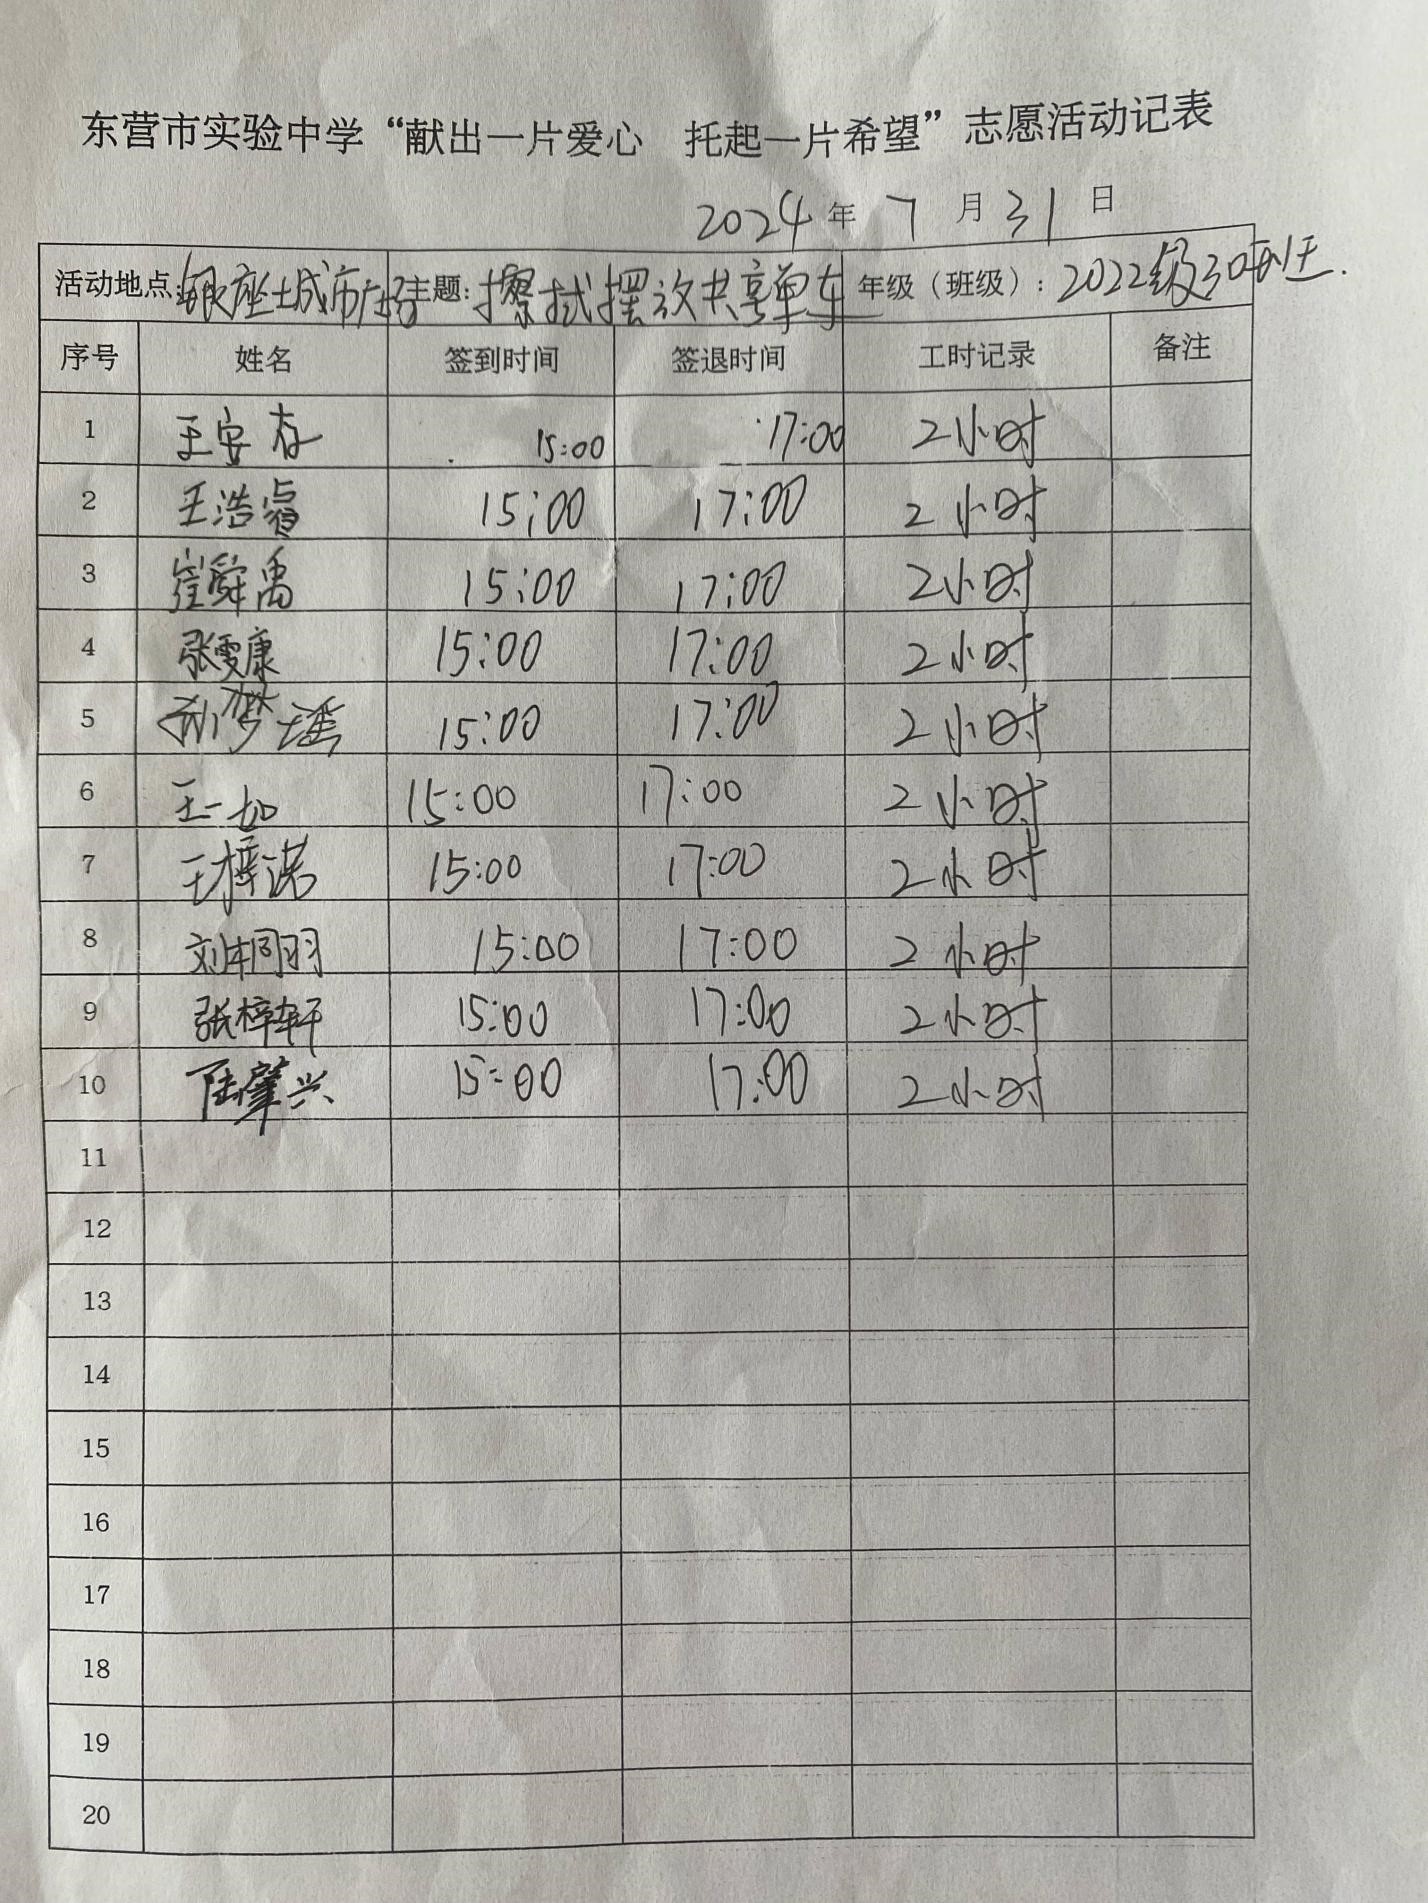 东营市实验中学“献出一片爱心 托起一片希望”志愿活动记表
2024年7月31日
活动地点:银座城市广场 主题:擦拭摆放共享单车 年级（班级）:2022级30班
序号 姓名 签到时间 签退时间 工时记录 备注
1 王安存 15:00 17:00 2小时
2 王浩睿 15:00 17:00 2小时
3 崔舜禹 15:00 17:00 2小时
4 张雯康 15:00 17:00 2小时
5 孙梦瑶 15:00 17:00 2小时
6 王一如 15:00 17:00 2小时
7 王梓诺 15:00 17:00 2小时
8 刘桐羽 15:00 17:00 2小时
9 张梓轩 15:00 17:00 2小时
10 陆肇兴 15:00 17:00 2小时
11
12
13
14
15
16
17
18
19
20